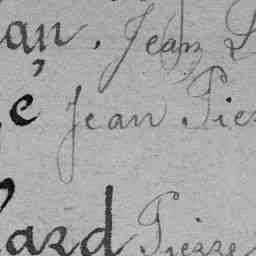 an, Jean
e Jean Pier
ard Pierre